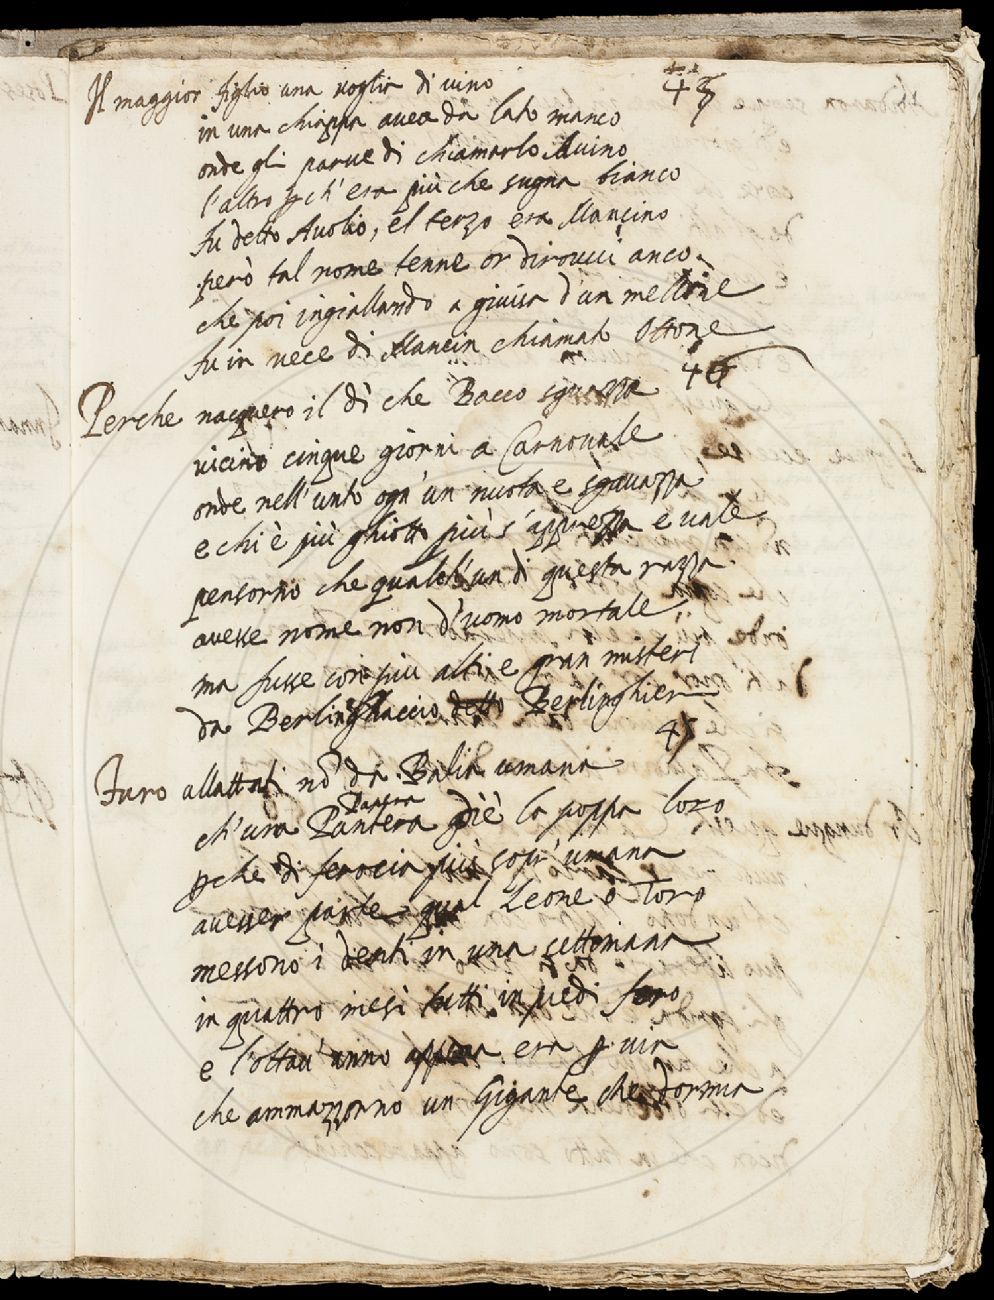 43
Il maggior figlio una voglia di vino
in una chiappa avea da lato manco
onde gli parve di chiamarlo Avino
l'altro pch'era più che sugna bianco
fu detto Avolio, el terzo era Mancino
però tal nome tenne or dirovvi anco
che poi ingiallando a guisa d'un mellone
fu in vece di Mancin chiamato Ottone
Perche nacquero il dì che Bacco sguazza
vicino cinque giorni a Carnovale
onde nell'unto ogn'un nuota e sguazza
e chi è più ghiotto più s'apprezza e vale
pensorno che qualch'un di questa razza
avesse nome non d'uomo mortale
ma fusse con più alti e gran misteri
da Berlinghaccio detto Berlinghieri
45
Furo allattati nõ da Balia umana
ch'una Pantera diè la poppa loro
pche di ferocia più sopr'umana
avesser parte qual Leone o Toro
messono i denti in una settimana
in quattro mesi tutti in piedi foro
e l'ottav'anno appena era p via
che ammazzorno un Gigante che dormia